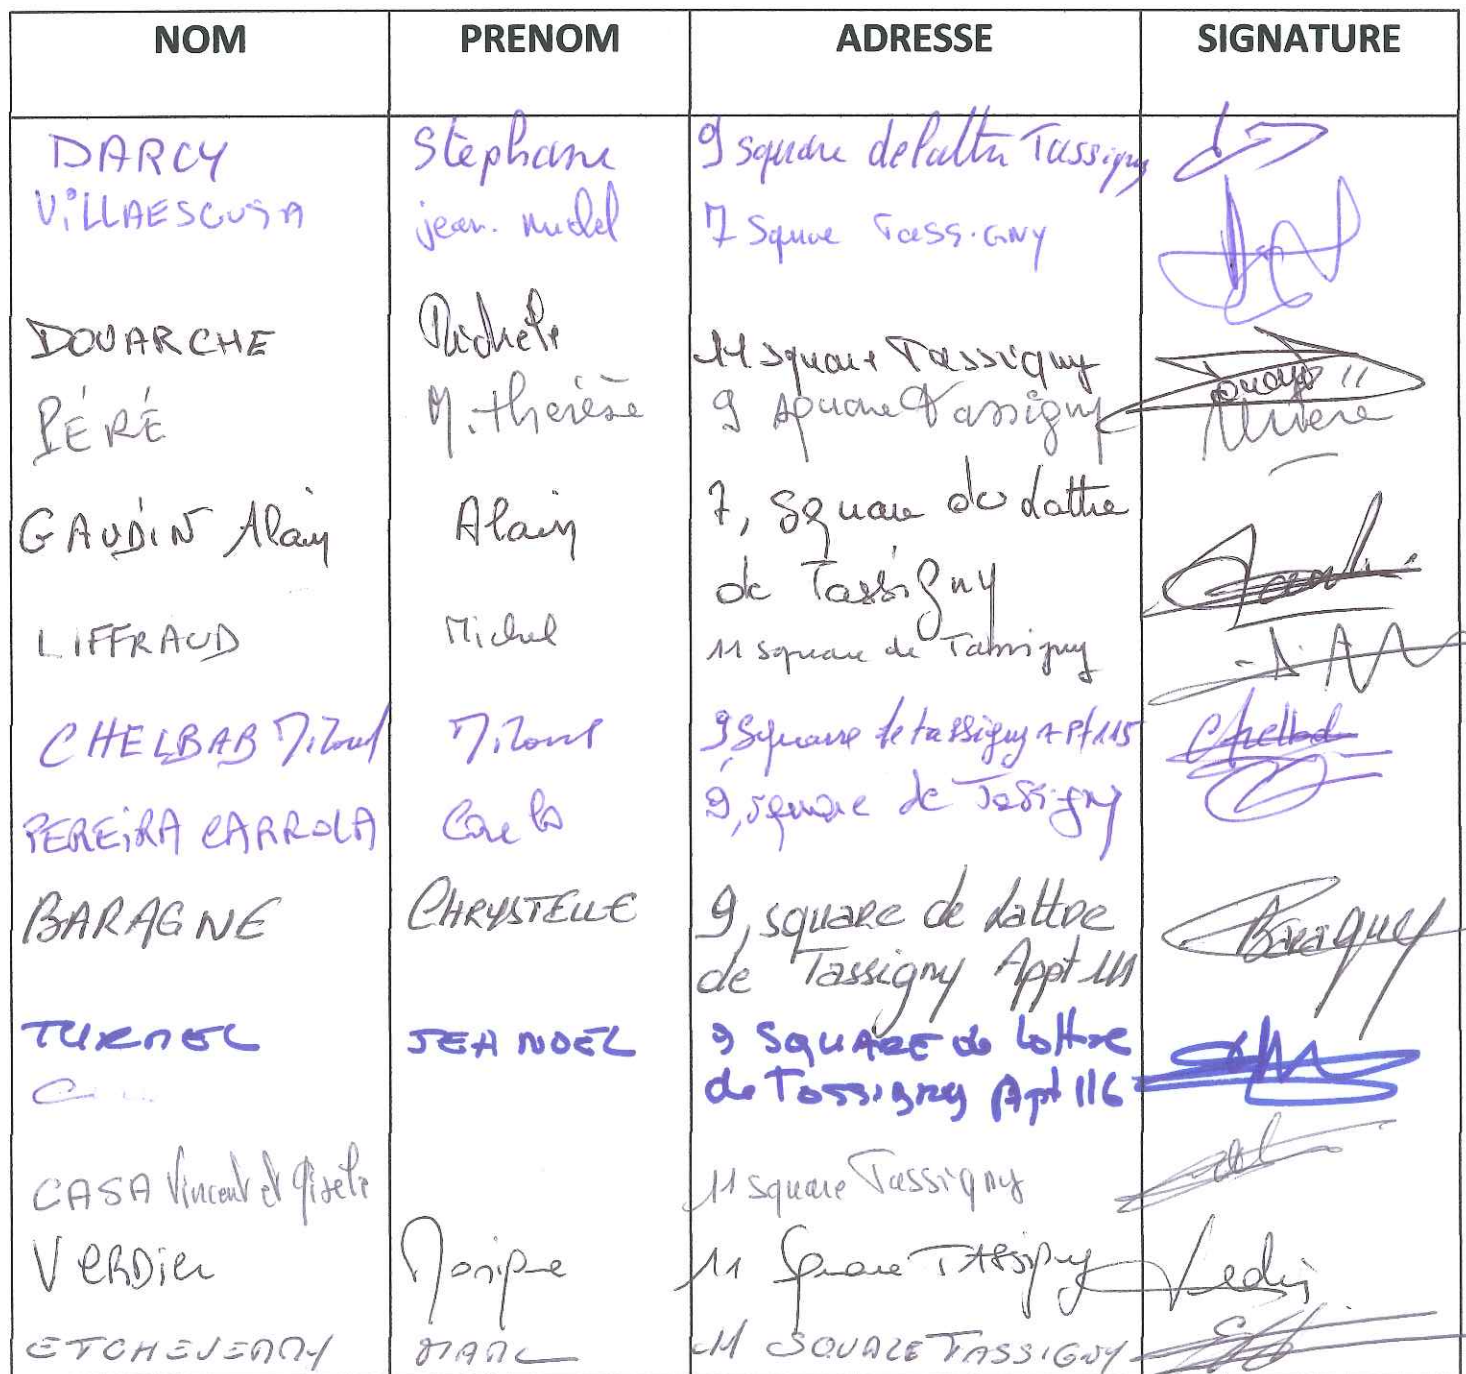 NOM PRENOM ADRESSE SIGNATURE
DARCY Stéphane 9 square de lattre Tassigny
ViLLAESCUSA jean.michel 7 Square TASSiGNY
DOUARCHE Michèle 11 square Tassigny
PÉRÉ M.thérèse 9 square Tassigny
GAUDIN Alain Alain 7, square de Lattre
de Tassigny
LIFFRAUD Michel 11 square de Tassigny
CHELBAB Miloud Miloud 9 Square de tassigny APt 115 Chelbab
PEREiRA CARROLA Carla 9, square de Tassigny
BARAGNE CHRYSTELLE 9, square de Lattre
de Tassigny Appt 111
TURMEL JEAN NOEL 9 SQUARE de Lattre
de Tassigny Apt 116
CASA Vincent et Gisèle 11 square Tassigny
VERDier Monique 11 Square TASSigny
ETCHEVERRY MARC 11 SQUARE TASSIGNY